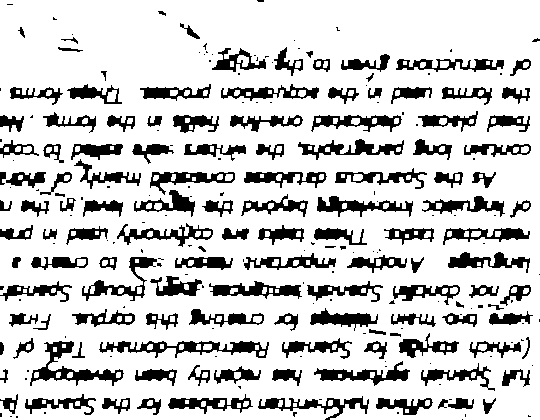 A new offline hand-written database for the Spanish la
full Spanish sentences, has recently been developed: t
(which stands for Spanish Restricted-domain Task of
were two main reasons for creating this corpus. First
do not contain Spanish sentences, even though Spanish
language. Another important reason was to create a
restricted tasks. These tasks are commonly used in prac
of linguistic knowledge beyond the lexicon level in the r
As the Spartacus database consisted mainly of short
contain long paragraphs, the writers were asked to copy
fixed places: dedicated one-line fields in the forms. Ne
the forms used in the acquisition process. These forms
of instructions given to the writer.